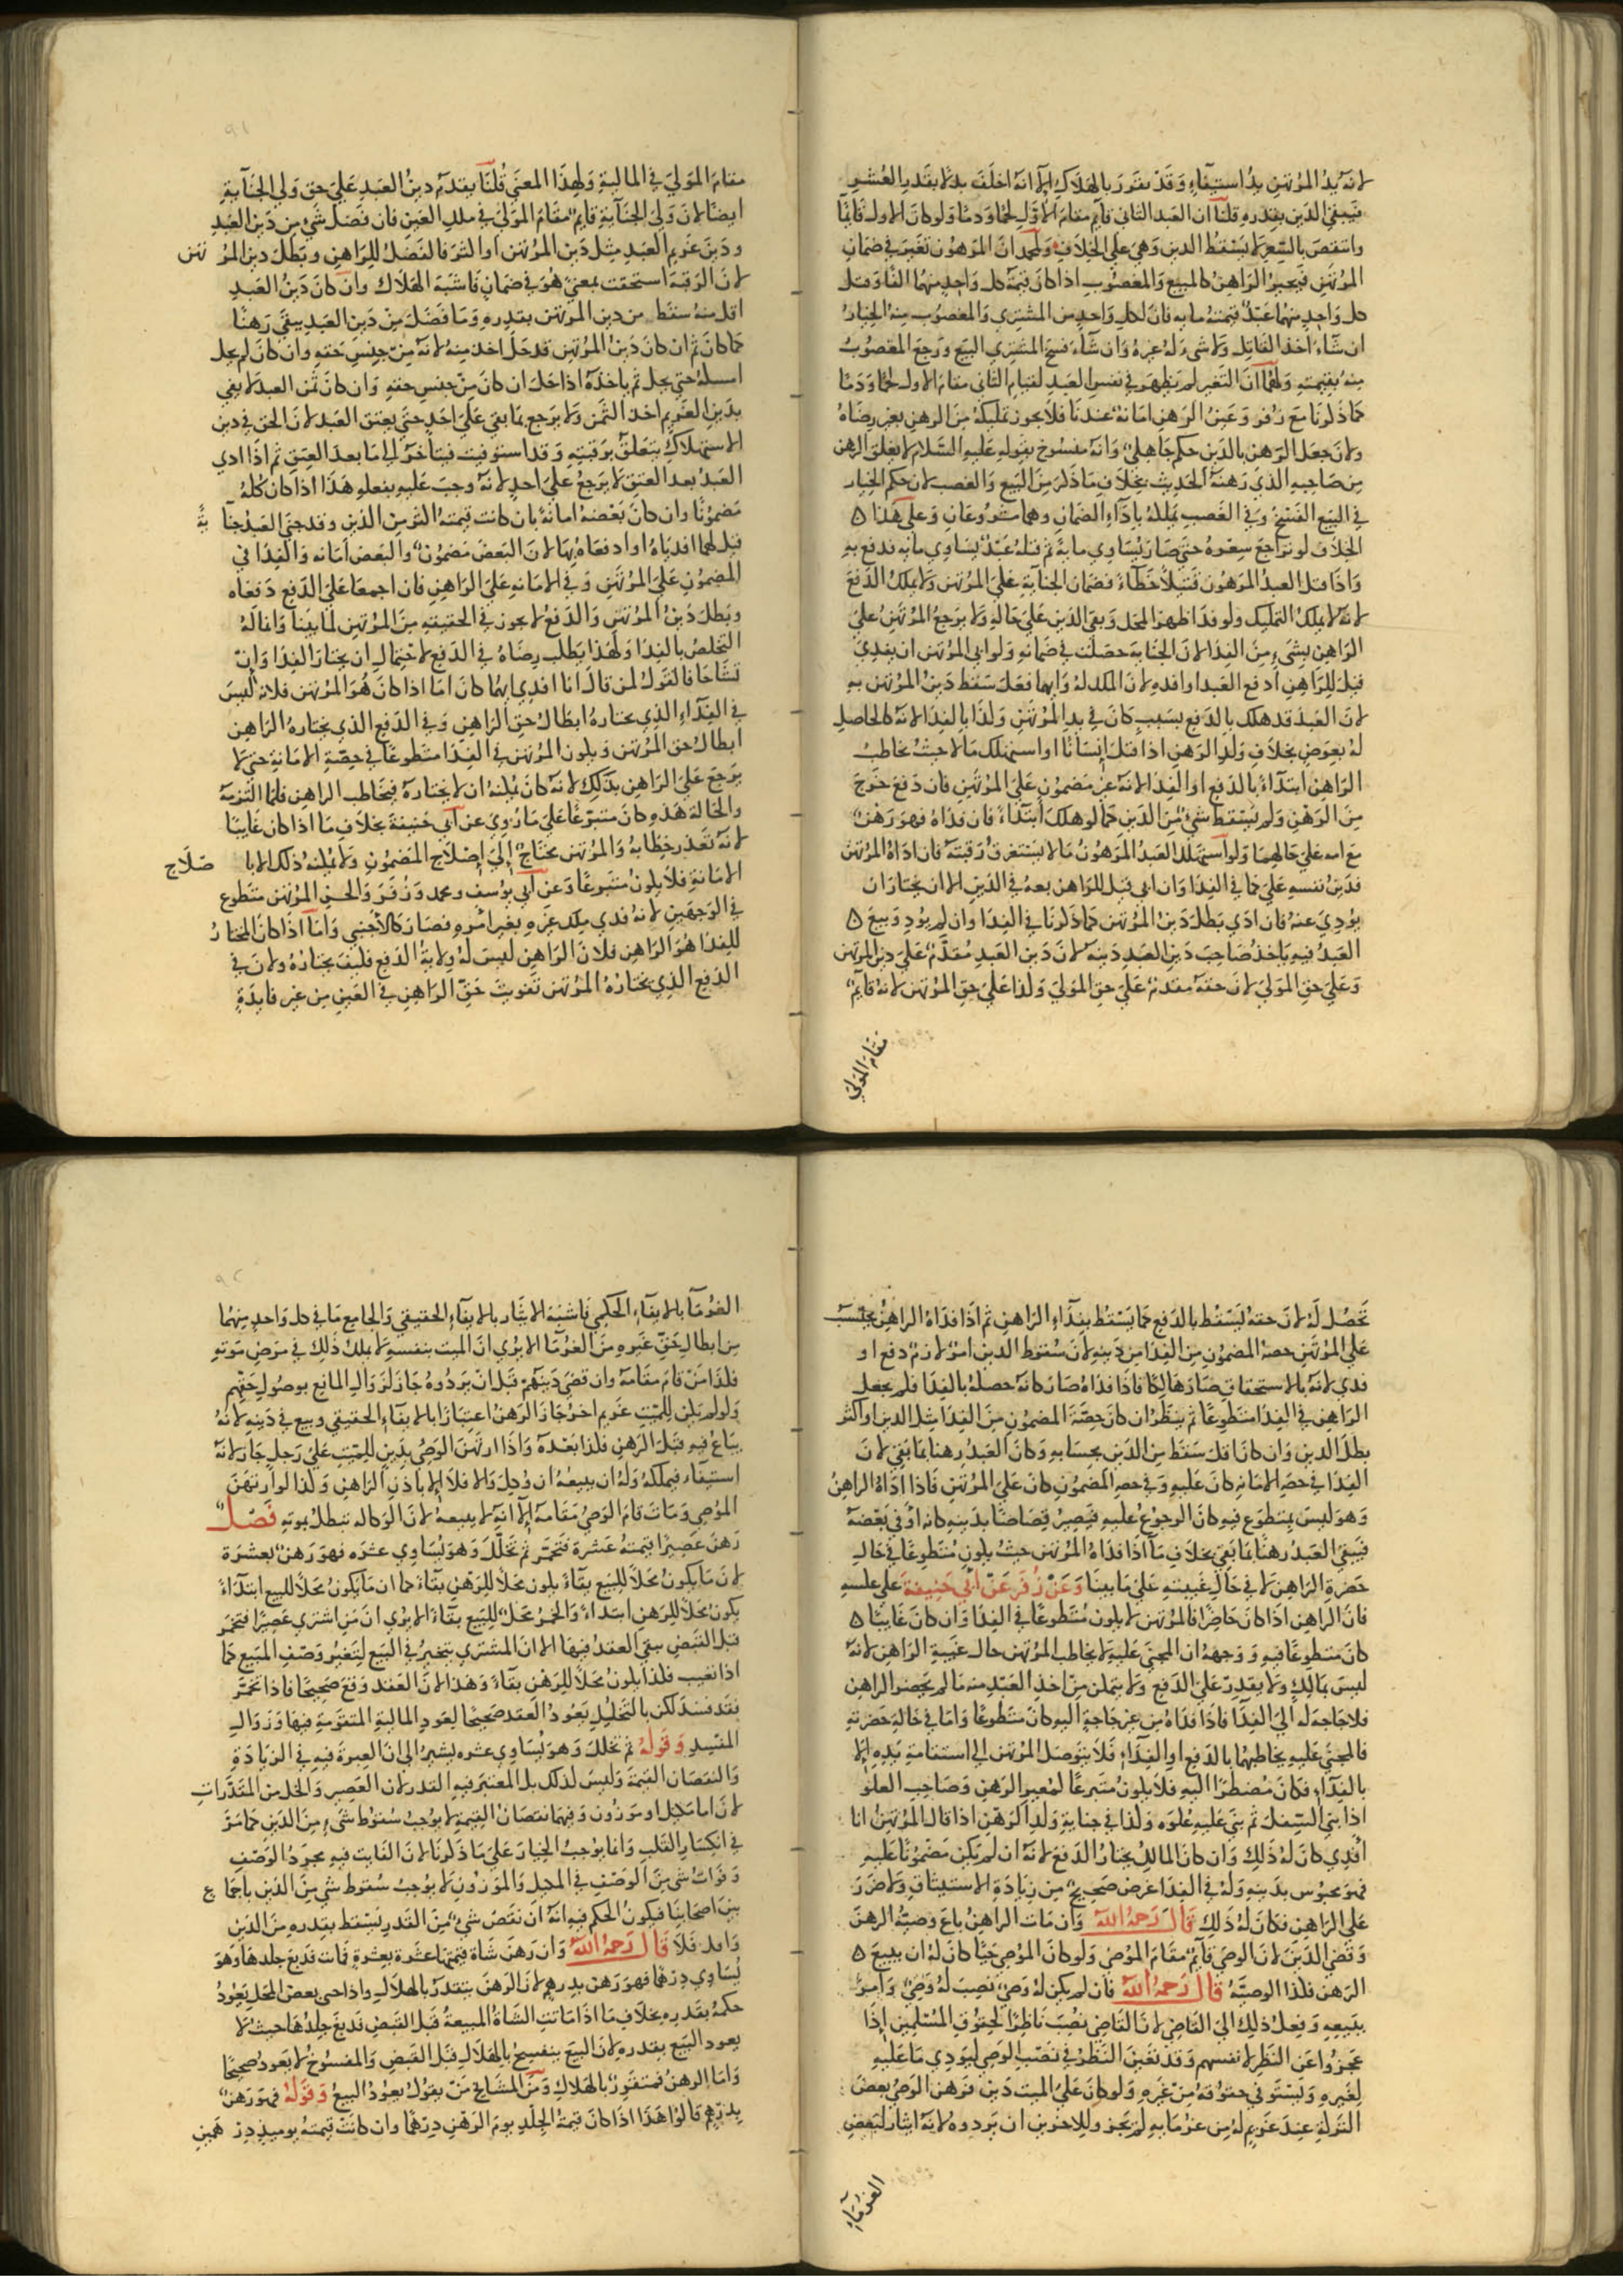 لانه يد المرتهن يد استيفاء وقد تقرر بالهلاك الا انه اخلف بدلا بقدر العشر
فيبقى الدين بقدره قلنا ان العبد الثاني قايم مقام الاول لحما ودما ولو كان الاول قايما
وانتقص بالسعر لا يسقط الدين وهي على الخلاف ولمحمد ان المرهون تغير في ضمان
المرتهن فيخير الراهن كالمبيع والمغصوب اذا كان قيمة كل واحد منهما الفا وقتل
كل واحد منهما عبد قيمته مايه فان لكل واحد من المشتري والمغصوب منه الخيار
ان شاء اخذ القاتل ولا شيء له غيره وان شاء فسخ المشتري البيع ورجع المغصوب
منه بقيمته ولهما ان التغير لم يظهر في نفس العبد لقيام الثاني مقام الاول لحما ودما
كما ذكرنا مع زفر وعين الرهن امانة عندنا فلا يجوز تمليكه من الرهن بغير رضاه
ولان جعل الرهن بالدين حكم جاهلي وانه منسوخ بقوله عليه السلام لا يغلق الرهن
من صاحبه الذي رهنه الحديث بخلاف ما ذكر من البيع والغصب لان حكم الخيار
في البيع الفسخ وفي الغصب يملكه باداء الضمان وهما مشروعان وعلى هذا ه
الخلاف لو تراجع سعره حتى صار يساوي ماية ثم قتله عبد يساوي مايه فدفع به
واذا قتل العبد المرهون قتيلا خطاء فضمان الجناية على المرتهن ولا يملك الدفع
لانه لا يملك التمليك ولو فدا ظهر المحل وبقى الدين على حاله ولا يرجع المرتهن على
الراهن بشيء من الفدا لان الجناية حصلت في ضمانه ولو ابى المرتهن ان يفدي
قيل للراهن ادفع العبد او افده لان الملك له وايهما فعل سقط دين المرتهن به
لان العبد قد هلك بالدفع بسبب كان في يد المرتهن وكذا بالفدا لانه كالحاصل
له بعوض بخلاف ولد الرهن اذا قتل انسانا او استهلك مالا حيث يخاطب
الراهن ابتداء بالدفع او الفدا لانه غير مضمون على المرتهن فان دفع خرج
من الرهن ولم يسقط شيء من الدين كما لو هلك ابتداء فان فداه فهو رهن
مع امه على حالهما ولو استهلك العبد المرهون مالا يستغرق رقبته فان اداه المرتهن
فدين نفسه على كما في الفدا وان ابى قيل للراهن بعه في الدين الا ان يختار ان
يودي عنه فان ادى بطل دين المرتهن كما ذكرنا في الفدا وان لم يود وبيع ه
العبد فيه ياخذ صاحب دين العبد دينه لان دين العبد مقدم على دين المرتهن
وعلى حق المولى لان حقه مقدم على حق المولى وكذا على حق المرتهن لانه قايم
مقام المولى
٩١
مقام المولى في المالية ولهذا المعنى قلنا بقدم دين العبد على حق ولى الجناية
ايضا لان ولى الجناية قايم مقام المولى في ملك العين فان فضل شيء من دين العبد
ودين غريم العبد مثل دين المرتهن او اكثر فالفضل للراهن وبطل دين المرتهن
لان الرقبة استحقت بمعنى هو في ضمان فاشبه الهلاك وان كان دين العبد
اقل منه سقط من دين المرتهن بقدره وما فضل من دين العبد يبقى رهنا
كما كان ثم ان كان دين المرتهن قد حل اخذ منه لانه من جنس حقه وان كان لم يحل
امسكه حتى يحل ثم ياخذه اذا حل ان كان من جنس حقه وان كان ثمن العبد لا يفي
بدين الغريم اخذ الثمن ولا يرجع بما بقى على احد حتى يعتق العبد لان الحق في دين
الاستهلاك يتعلق برقبته وقد استوفيت فيتاخر الى ما بعد العتق ثم اذا ادى
العبد بعد العتق لا يرجع على احد لانه وجب عليه بفعله هذا اذا كان كله
مضمونا وان كان بعضه امانة بان كانت قيمته اكثر من الدين وقد جنى العبد جناية
قيل لهما افدياه او ادفعاه بها لان البعض مضمون والبعض امانه والفدا في
المضمون على المرتهن وفي الامانه على الراهن فان اجمعا على الدفع دفعاه
وبطل دين المرتهن والدفع لا يجوز في الحقيقة من المرتهن لما بينا وانما له
التخلص بالفدا ولهذا يطلب رضاه في الدفع لاحتمال ان يختار الفدا وان
تشاحا فالقول لمن قال انا افدي ايهما كان اما اذا كان هو المرتهن فلانه ليس
في الفداء الذي يختاره ابطال حق الراهن وفي الدفع الذي يختاره الراهن
ابطال حق المرتهن ويكون المرتهن في الفدا متطوعا في حصة الامانة حتى لا
يرجع على الراهن بذلك لانه كان يمكنه ان لا يختاره فيخاطب الراهن فلما التزمه
والحالة هذه كان متبرعا على ما روي عن ابي حنيفة بخلاف ما اذا كان غايبا
لانه تعذر خطابه والمرتهن يحتاج الى اصلاح المضمون ولا يمكنه ذلك الا باصلاح
الامانة فلا يكون متبرعا وعن ابي يوسف ومحمد وزفر والحسن المرتهن متطوع
في الوجهين لانه فدى ملك غيره بغير امره فصار كالاجنبي واما اذا كان المختار
للفدا هو الراهن فلان الراهن ليس له ولاية الدفع فكيف يختاره ولان في
الدفع الذي يختاره المرتهن تفويت حق الراهن في العين من غير فايدة
تحصل له لان حقه يسقط بالدفع كما يسقط بفداء الراهن ثم اذا فداه الراهن يحتسب
على المرتهن حصة المضمون من الفدا من دينه لان سقوط الدين امر لازم دفع او
فدى لانه بالاستحقاق صار هالكا فاذا فداه صار كانه حصله بالفدا فلم يجعل
الراهن في الفدا متطوعا ثم ينظر ان كان حصة المضمون من الفدا مثل الدين او اكثر
بطل الدين وان كان اقل سقط من الدين بحسابه وكان العبد رهنا بما بقى لان
الفدا في حصه الامانه كان عليه وفي حصه المضمون كان على المرتهن فاذا اداه الراهن
وهو ليس بمتطوع فيه كان الرجوع عليه فيصير قصاصا بدينه كانه اوفى بعضه
فيبقى العبد رهنا بما بقى بخلاف ما اذا فداه المرتهن حيث يكون متطوعا في حال
حضرة الراهن لا في حال غيبته على ما بينا وعن زفر عن ابي حنيفة على عكسه
فان الراهن اذا كان حاضرا فالمرتهن لا يكون متطوعا في الفدا وان كان غايبا ه
كان متطوعا فيه ووجهه ان المجنى عليه لا يخاطب المرتهن حال غيبة الراهن لانه
ليس بمالك ولا يقدر على الدفع ولا يتمكن من اخذ العبد منه ما لم يحضر الراهن
فلا حاجة له الى الفدا فاذا فداه من غير حاجة اليه كان متطوعا واما في حالة حضرته
فالمجنى عليه يخاطبهما بالدفع او الفداء فلا يتوصل المرتهن الى استدامة يده الا
بالفداء فكان مضطرا اليه فلا يكون متبرعا كمعير الرهن وصاحب العلو
اذا بنى السفل ثم بنى عليه علوه وكذا في جناية ولد الرهن اذا قال المرتهن انا
افدي كان له ذلك وان كان المالك يختار الدفع لانه ان لم يكن مضمونا عليه
فهو محبوس بدينه وله في الفدا غرض صحيح من زيادة الاستيثاق ولا ضرر
على الراهن فكان له ذلك قال رحمه الله وان مات الراهن باع وصيه الرهن
وقضى الدين لان الوصي قايم مقام الموصي ولو كان الموصي حيا كان له ان يبيع ه
الرهن فكذا الوصية قال رحمه الله فان لم يكن له وصي نصب له وصي وامر
ببيعه وفعل ذلك الى القاضي لان القاضي نصب ناظرا لحقوق المسلمين اذا
عجزوا عن النظر لانفسهم وقد تعين النظر في نصب الوصي ليودي ما عليه
لغيره ويستوفي حقوقه من غيره ولو كان على الميت دين فرهن الوصي بعض
التركة عند غريم له من غرمايه لم يجز وللاخرين ان يردوه لانه ايثار لبعض
الغرماء
٩٢
الغرما بالايفاء الحكمي فاشبه الايثار بالايفاء الحقيقي والجامع ما في كل واحد منهما
من ابطال حق غيره من الغرما الا يرى ان الميت بنفسه لا يملك ذلك في مرض موته
فكذا من قام مقامه وان قضى دينهم قبل ان يردوه جاز لزوال المانع بوصول حقهم
ولو لم يكن للميت غريم اخر جاز الرهن اعتبارا بالايفاء الحقيقي وبيع في دينه لانه
يباع فيه قبل الرهن فكذا بعده واذا ارتهن الوصي بدين للميت على رجل جاز لانه
استيفاء فيملكه وله ان يبيعه ان وكل والا فلا الا باذن الراهن وكذا لو ارتهن
الموصي ومات قام الوصي مقامه الا انه لا يبيعه لان الوكاله تبطل بموته فصل
رهن عصيرا قيمته عشرة فتخمر ثم تخلل وهو يساوي عشره فهو رهن بعشرة
لان ما يكون محلا للبيع بقاء يكون محلا للرهن بقاء كما ان ما يكون محلا للبيع ابتداء
يكون محلا للرهن ابتداء والخمر محل للبيع بقاء الا يرى ان من اشترى عصيرا فتخمر
قبل القبض يبقى العقد فيها الا ان المشتري يتخير في البيع لتغير وصف المبيع كما
اذا تعيب فكذا يكون محلا للرهن بقاء وهذا لان العقد وقع صحيحا فاذا تخمر
فقد فسد لكن بالتخليل يعود العقد صحيحا لعود المالية المتقومة فيها وزوال
المفسد وقوله ثم تخلل وهو يساوي عشره يشير الى ان العبرة فيه في الزيادة
والنقصان القيمة وليس كذلك بل المعتبر فيه القدر لان العصير والخل من المقدرات
لانه اما مكيل او موزون وفيهما نقصان القيمة لا يوجب سقوط شيء من الدين كما مر
في انكسار القلب وانما يوجب الخيار على ما ذكرنا لان الفايت فيه مجرد الوصف
وفوات شيء من الوصف في المكيل والموزون لا يوجب سقوط شيء من الدين باجماع
بين اصحابنا فيكون الحكم فيه انه ان نقص شيء من القدر يسقط بقدره من الدين
والا فلا قال رحمه الله وان رهن شاة قيمتها عشرة بعشرة فماتت فدبغ جلدها وهو
يساوي درهما فهو رهن بدرهم لان الرهن يتقرر بالهلاك واذا حيى بعض المحل يعود
حكمه بقدره بخلاف ما اذا ماتت الشاة المبيعة قبل القبض فدبغ جلدها حيث لا
يعود البيع بقدره لان البيع ينفسخ بالهلاك قبل القبض والمفسوخ لا يعود صحيحا
واما الرهن فمتقرر بالهلاك ومن المشايخ من يقول يعود البيع وقوله فهو رهن
بدرهم قالوا هذا اذا كان قيمة الجلد يوم الرهن درهما وان كانت قيمته يوميذ درهمين